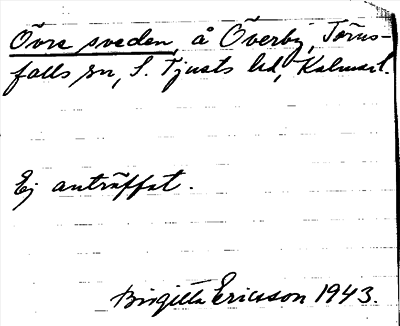 Övre sveden, å Överby, Törns-
falls sn, S. Tjusts hd, Kalmar l.
Ej anträffat.
Birgitta Ericsson 1943.